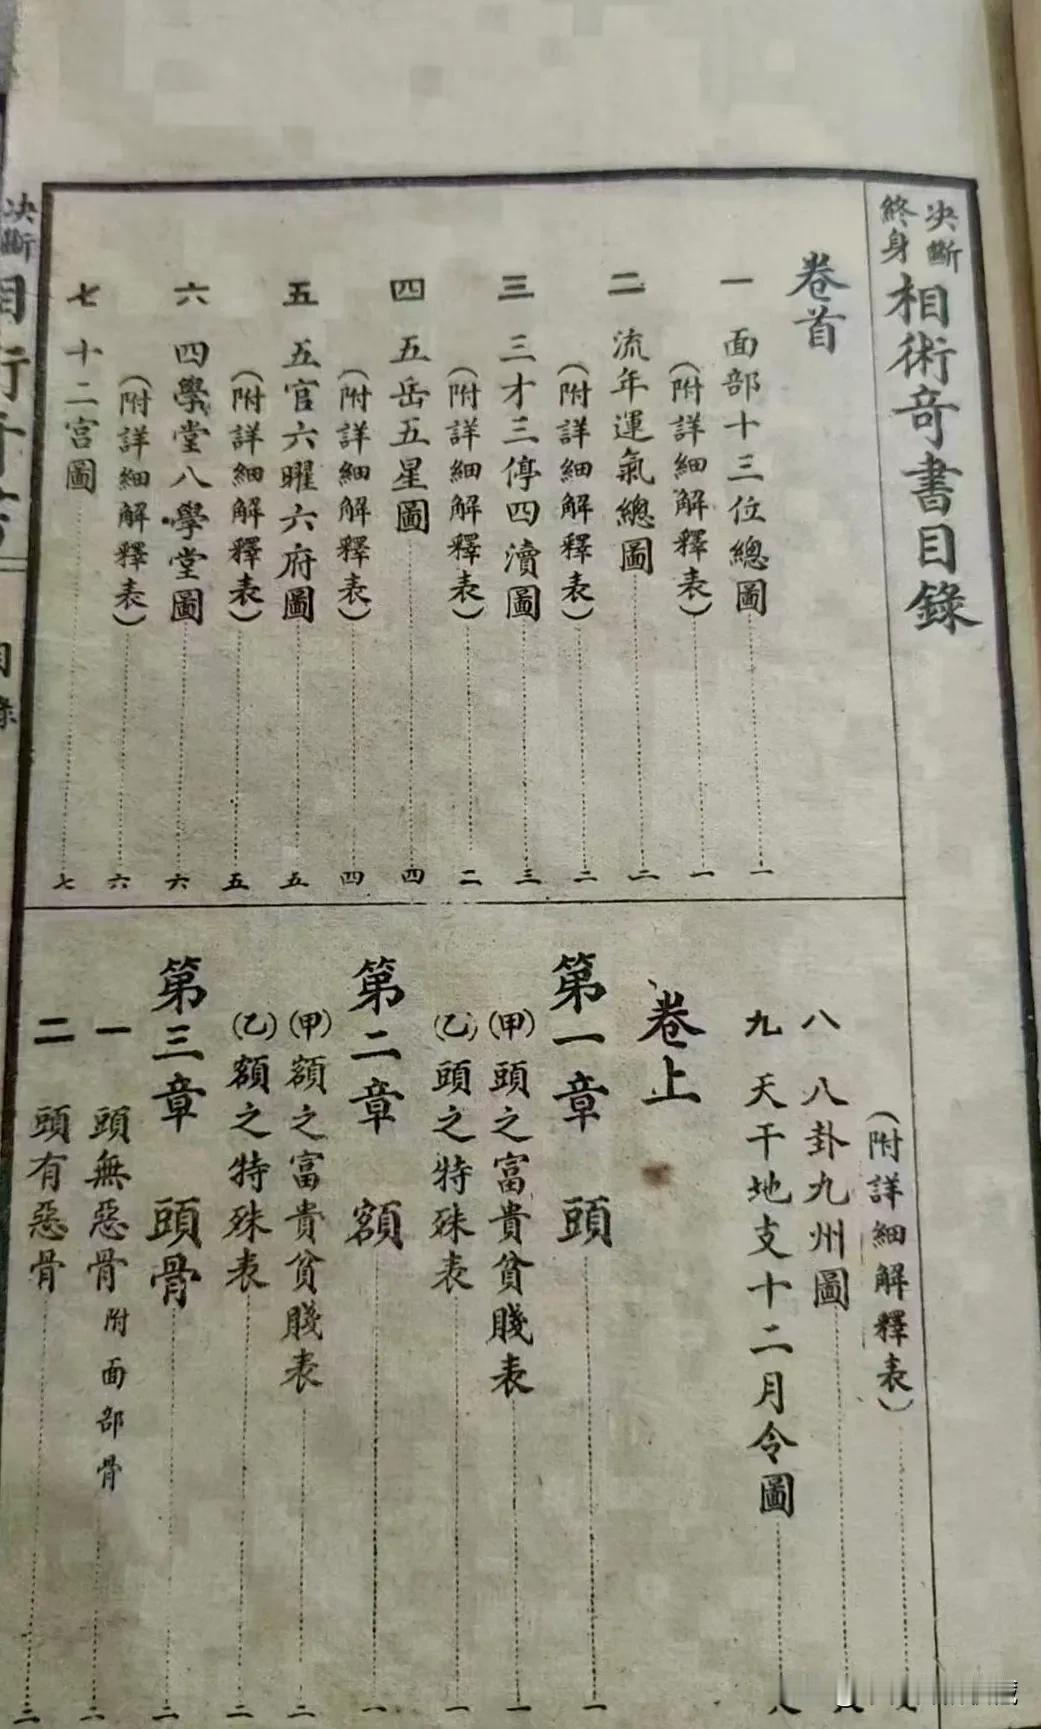 決斷終身相術奇書目錄
卷首
一 面部十三位總圖 一
(附詳細解釋表) 一
二 流年運氣總圖 二
(附詳細解釋表) 二
三 三才三停四瀆圖 三
(附詳細解釋表) 二
四 五岳五星圖 四
(附詳細解釋表) 四
五 五官六曜六府圖 五
(附詳細解釋表) 五
六 四學堂八學堂圖 六
(附詳細解釋表) 六
七 十二宮圖 七
(附詳細解釋表)
八 八卦九州圖
九 天干地支十二月令圖 八
卷上
第一章 頭 一
(甲)頭之富貴貧賤表 一
(乙)頭之特殊表 一
第二章 額 一
(甲)額之富貴貧賤表 二
(乙)額之特殊表 二
第三章 頭骨 二
一 頭無惡骨附面部骨 二
二 頭有惡骨 三
決斷
目錄